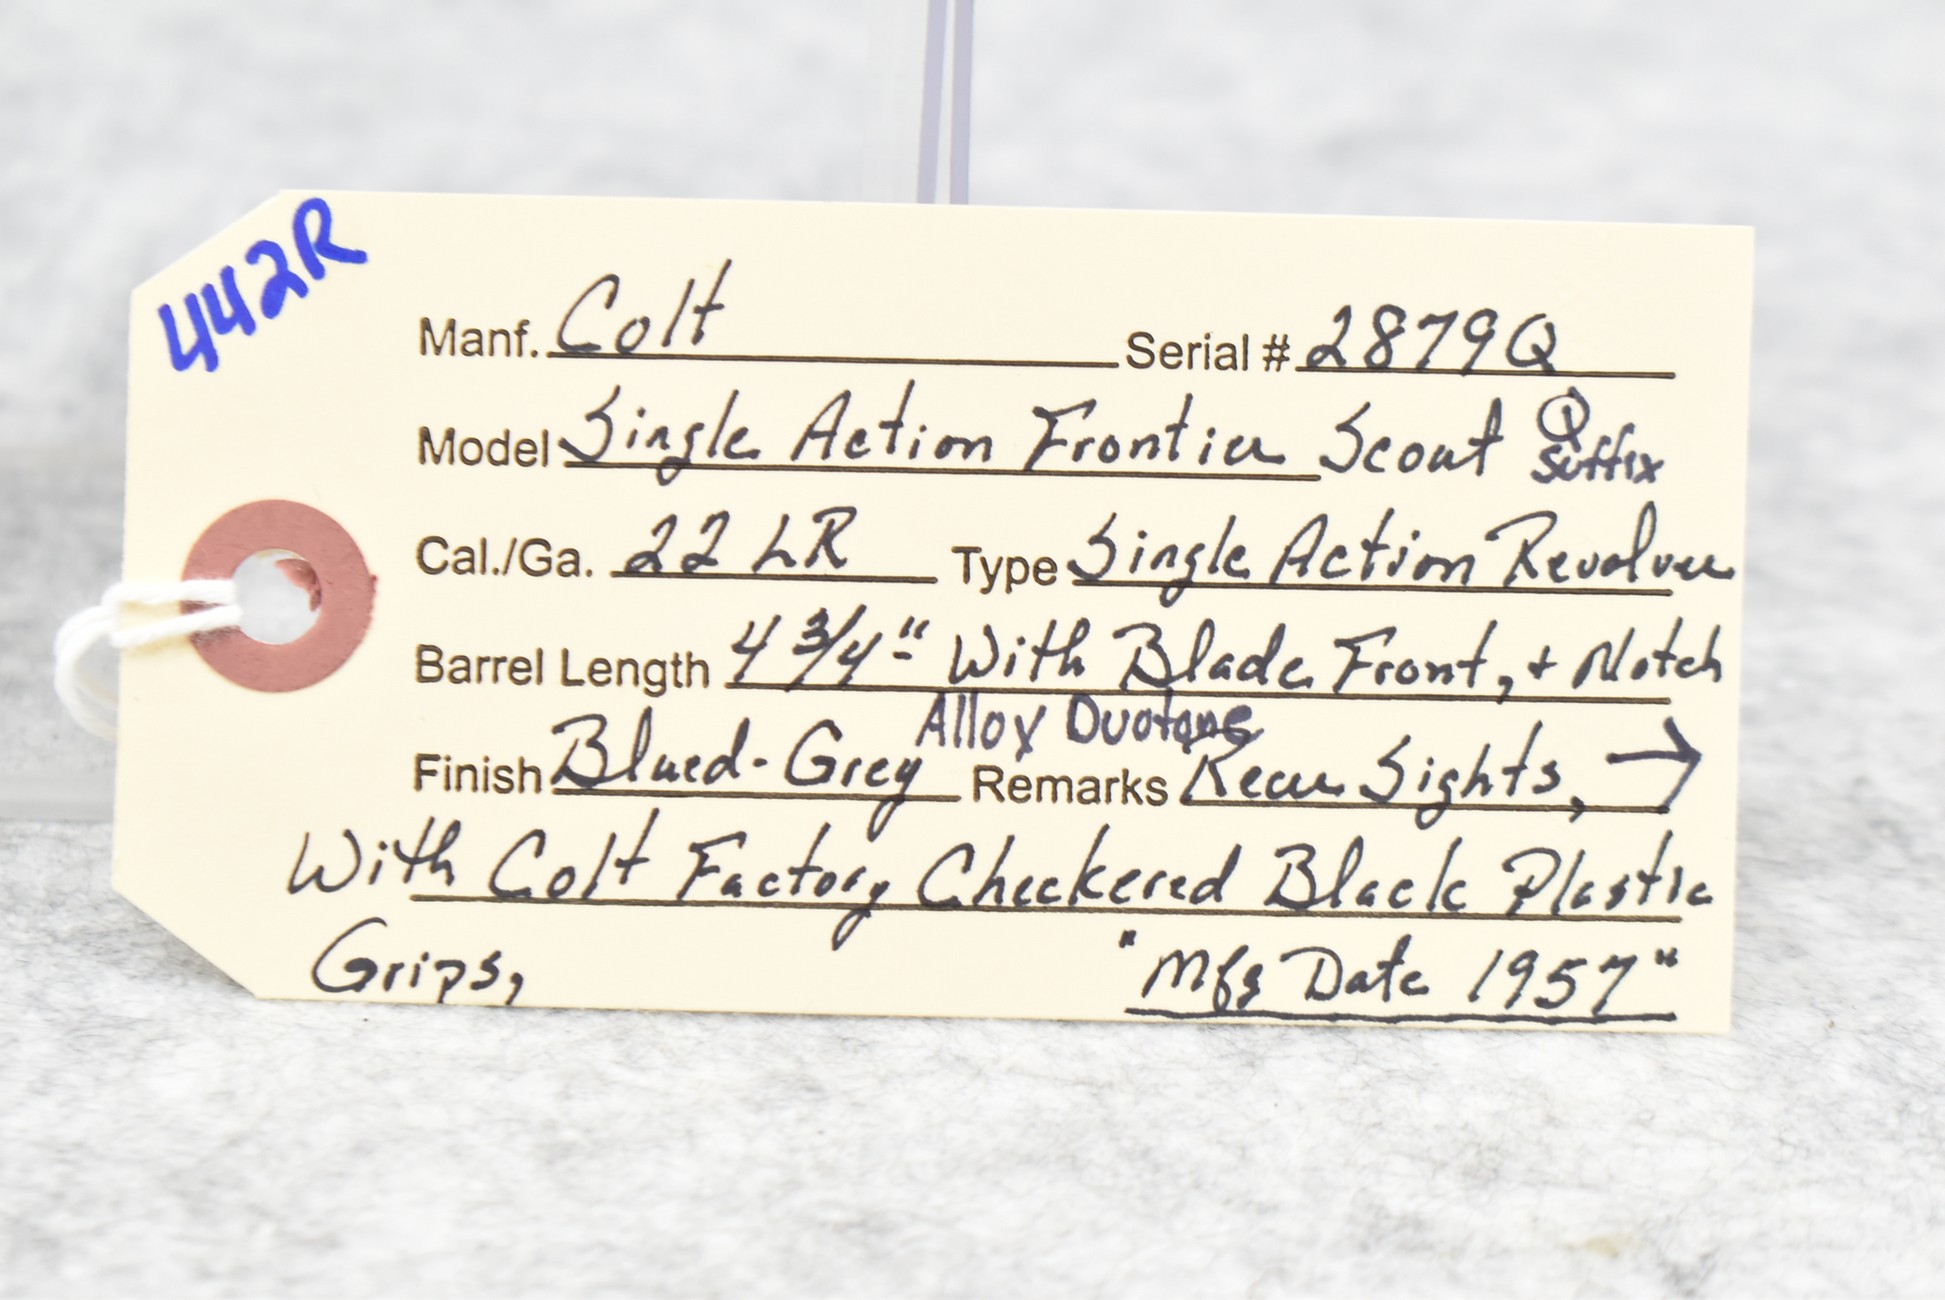 442R
Manf. Colt Serial # 2879Q
Model Single Action Frontier Scout Q Suffix
Cal./Ga. 22 LR Type Single Action Revolver
Barrel Length 4 3/4" With Blade Front, + Notch
Alloy Duotone
Finish Blued-Grey Remarks Rear Sights, →
With Colt Factory Checkered Black Plastic
Grips, "Mfg Date 1957"